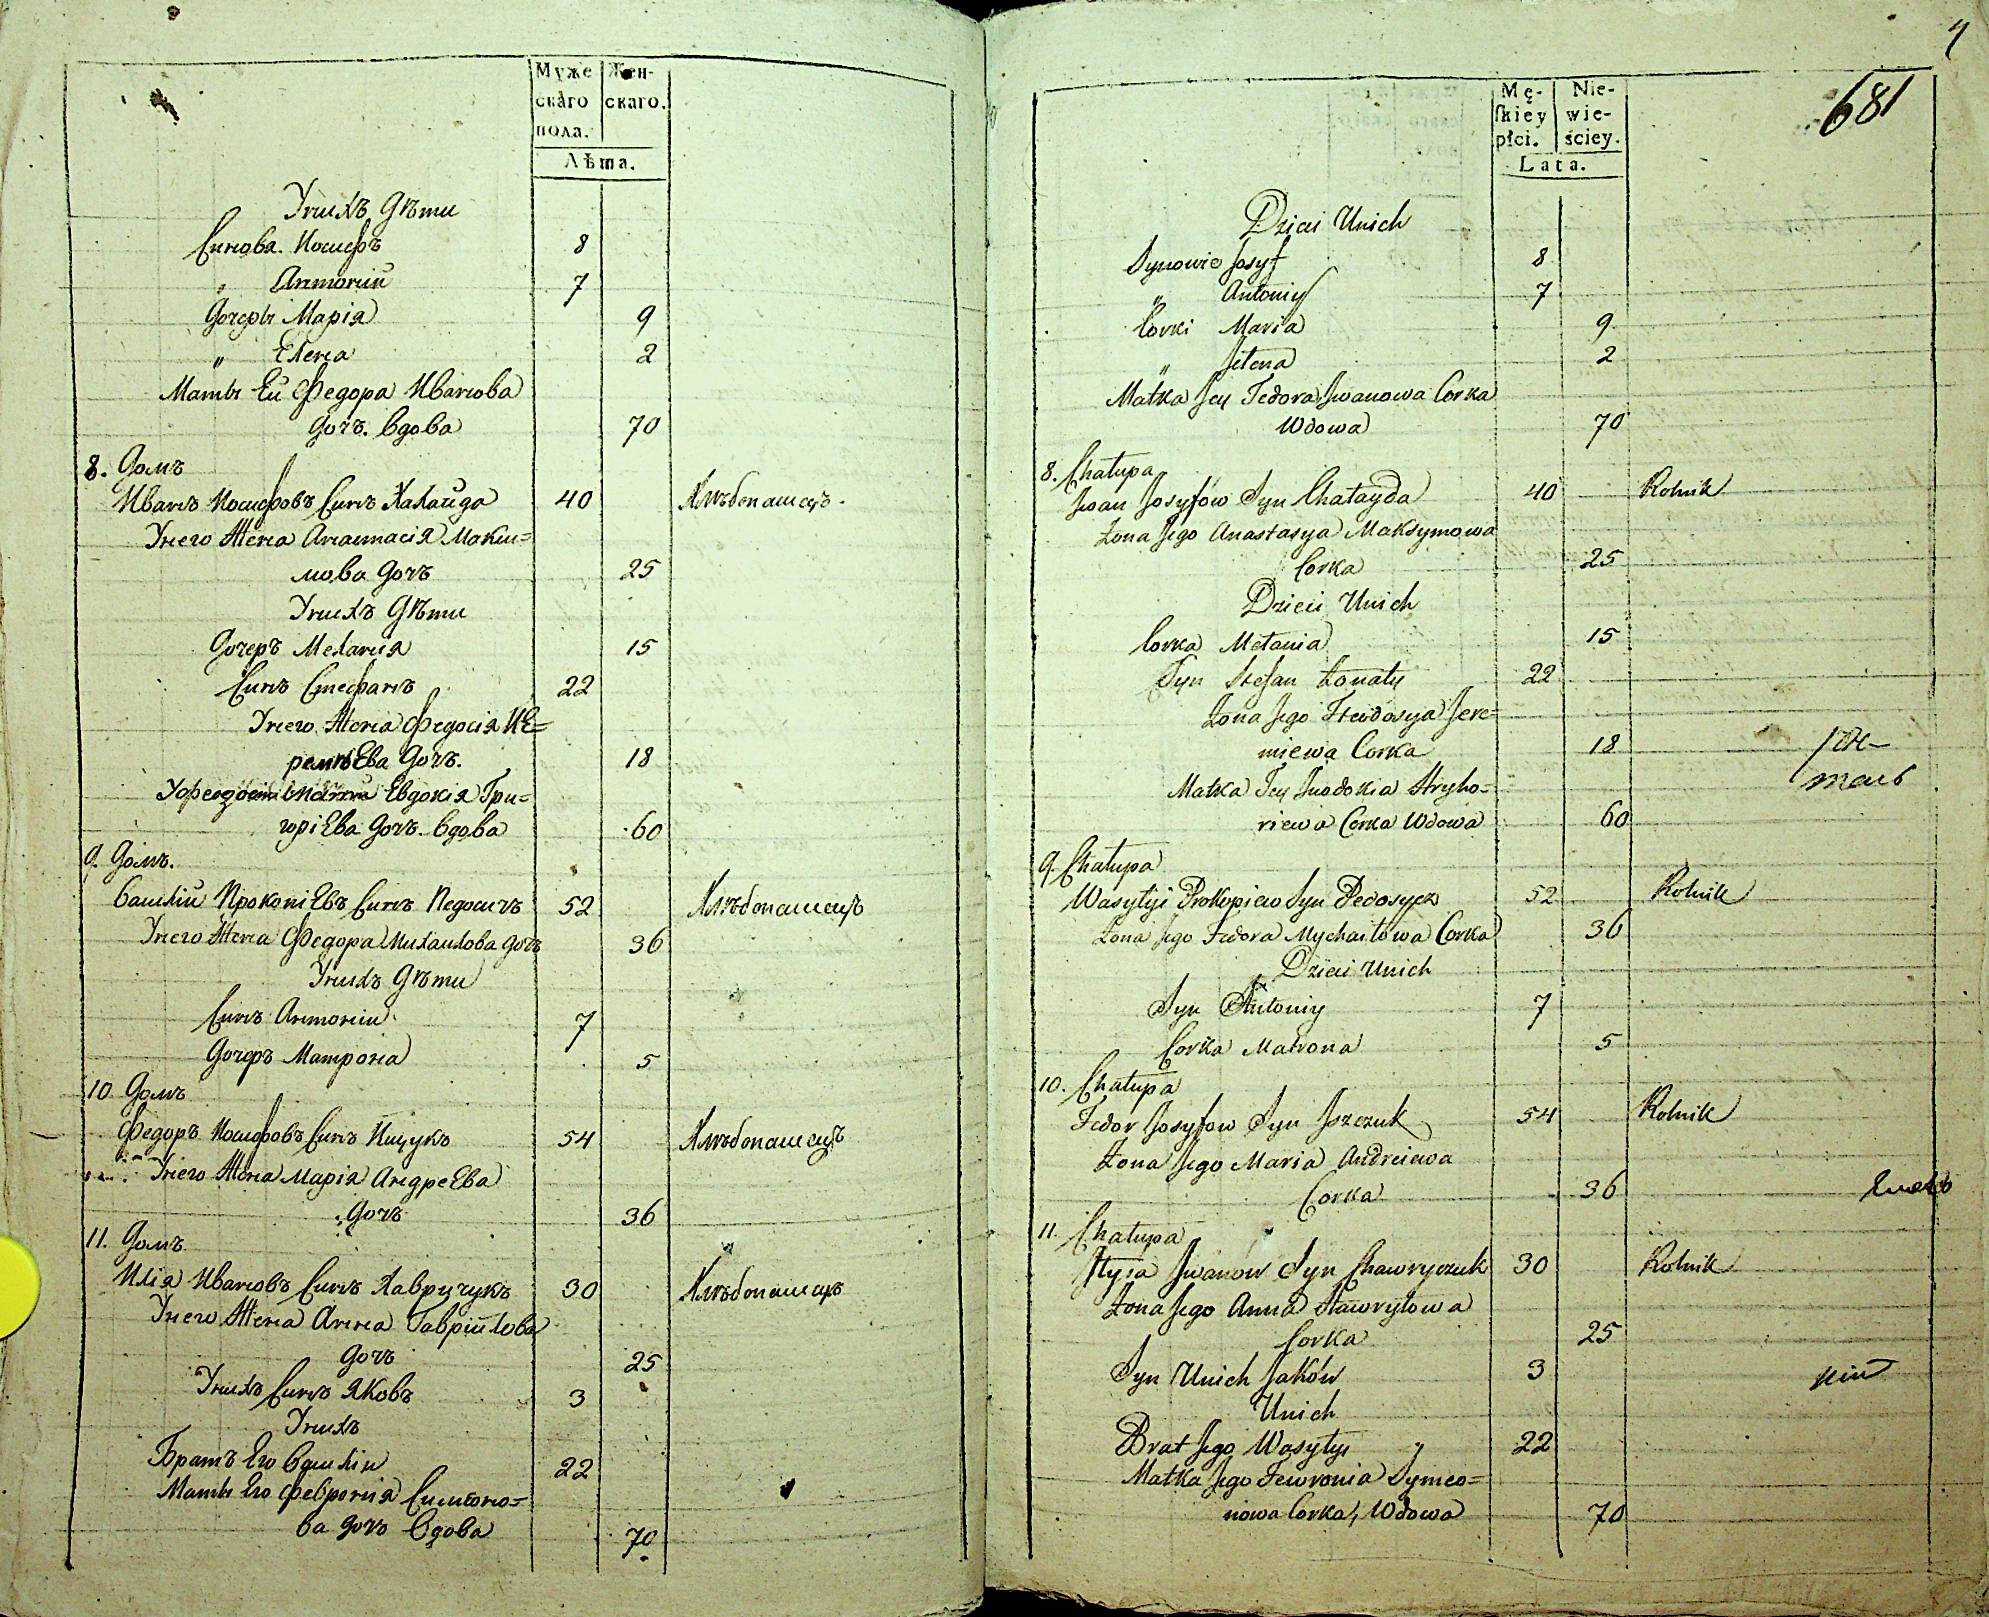 Муже Жен-
скаго скаго.
пола.
Лѣта.
У нихъ Дѣти
Синова. Иосифъ 8
„ Антоній 7
Дочеры Марія 9
„ Елена 2
Маты Ей Федора Иванова
дочъ. вдова 70
8. Домъ
Иванъ Иосифовъ Синъ Халайда 40 Хлѣбопашецъ.
У него Жена Анастасія Макси=
мова дочъ 25
У нихъ Дѣти
Дочеръ Меланія 15
Синъ Стефанъ 22
У него Жена Федосія ИЕ=
реміЕва Дочъ. 18
У Федосіи Мати Евдокія Гри=
горіЕва дочъ. вдова 60
9. Домъ.
Василій ПрокопіЕвъ Синъ Педосичъ 52 Хлѣбопашецъ
У него Жена Федора Михаилова дочъ 36
У нихъ Дѣти
Синъ Антоній 7
Дочеръ Матрона 5
10 Домъ
Федоръ Иосифовъ Синъ Ищукъ 54 Хлѣбопашецъ
У него Жена Марія АндреЕва
Дочъ 36
11. Домъ
Илія Ивановъ Синъ Хавричукъ 30 Хлѣбопашецъ
У него Жена Анна Гавріилова
дочъ 25
У нихъ Синъ Яковъ 3
У нихъ
Братъ Его Василій 22
Маты Его Февронія Симеоно=
ва дочъ Вдова 70
681
Mę- Nie-
skiey wie-
płci. ściey.
Lata.
Dzieci Unich
Synowie Josyf 8
„ Antoniy 7
Corki Maria 9
„ Jełena 2
Matka Jey Fedora Jwanowa Corka
Wdowa 70
8. Chałupa
Jwan Josyfów Syn Chałayda 40 Rolnik
Żona Jego Anastasya Maksymowa
Corka 25
Dzieci Unich
Corka Mełania 15
Syn Stefan Żonaty 22
Żona Jego Fteodosya Jere=
miewa Corka 18
Matka Jey Jwdokia Hryho=
riewa Corka Wdowa 60
9. Chałupa
Wasylyi Prokopiew Syn Pedosycz 52 Rolnik
Żona Jego Fedora Mychaiłowa Corka 36
Dzieci Unich
Syn Antoniy 7
Corka Matrona 5
10. Chałupa
Fedor Josyfow Syn Jszczuk 54 Rolnik
Żona Jego Maria Andreiewa
Corka 36
11. Chałupa
Jlyia Jwanów Syn Chawryczuk 30 Rolnik
Żona Jego Anna Hawryłowa
Corka 25
Syn Unich Jaków 3
Unich
Brat Jego Wasyłyi 22
Matka Jego Fewronia Symeo=
nowa Corka, Wdowa 70